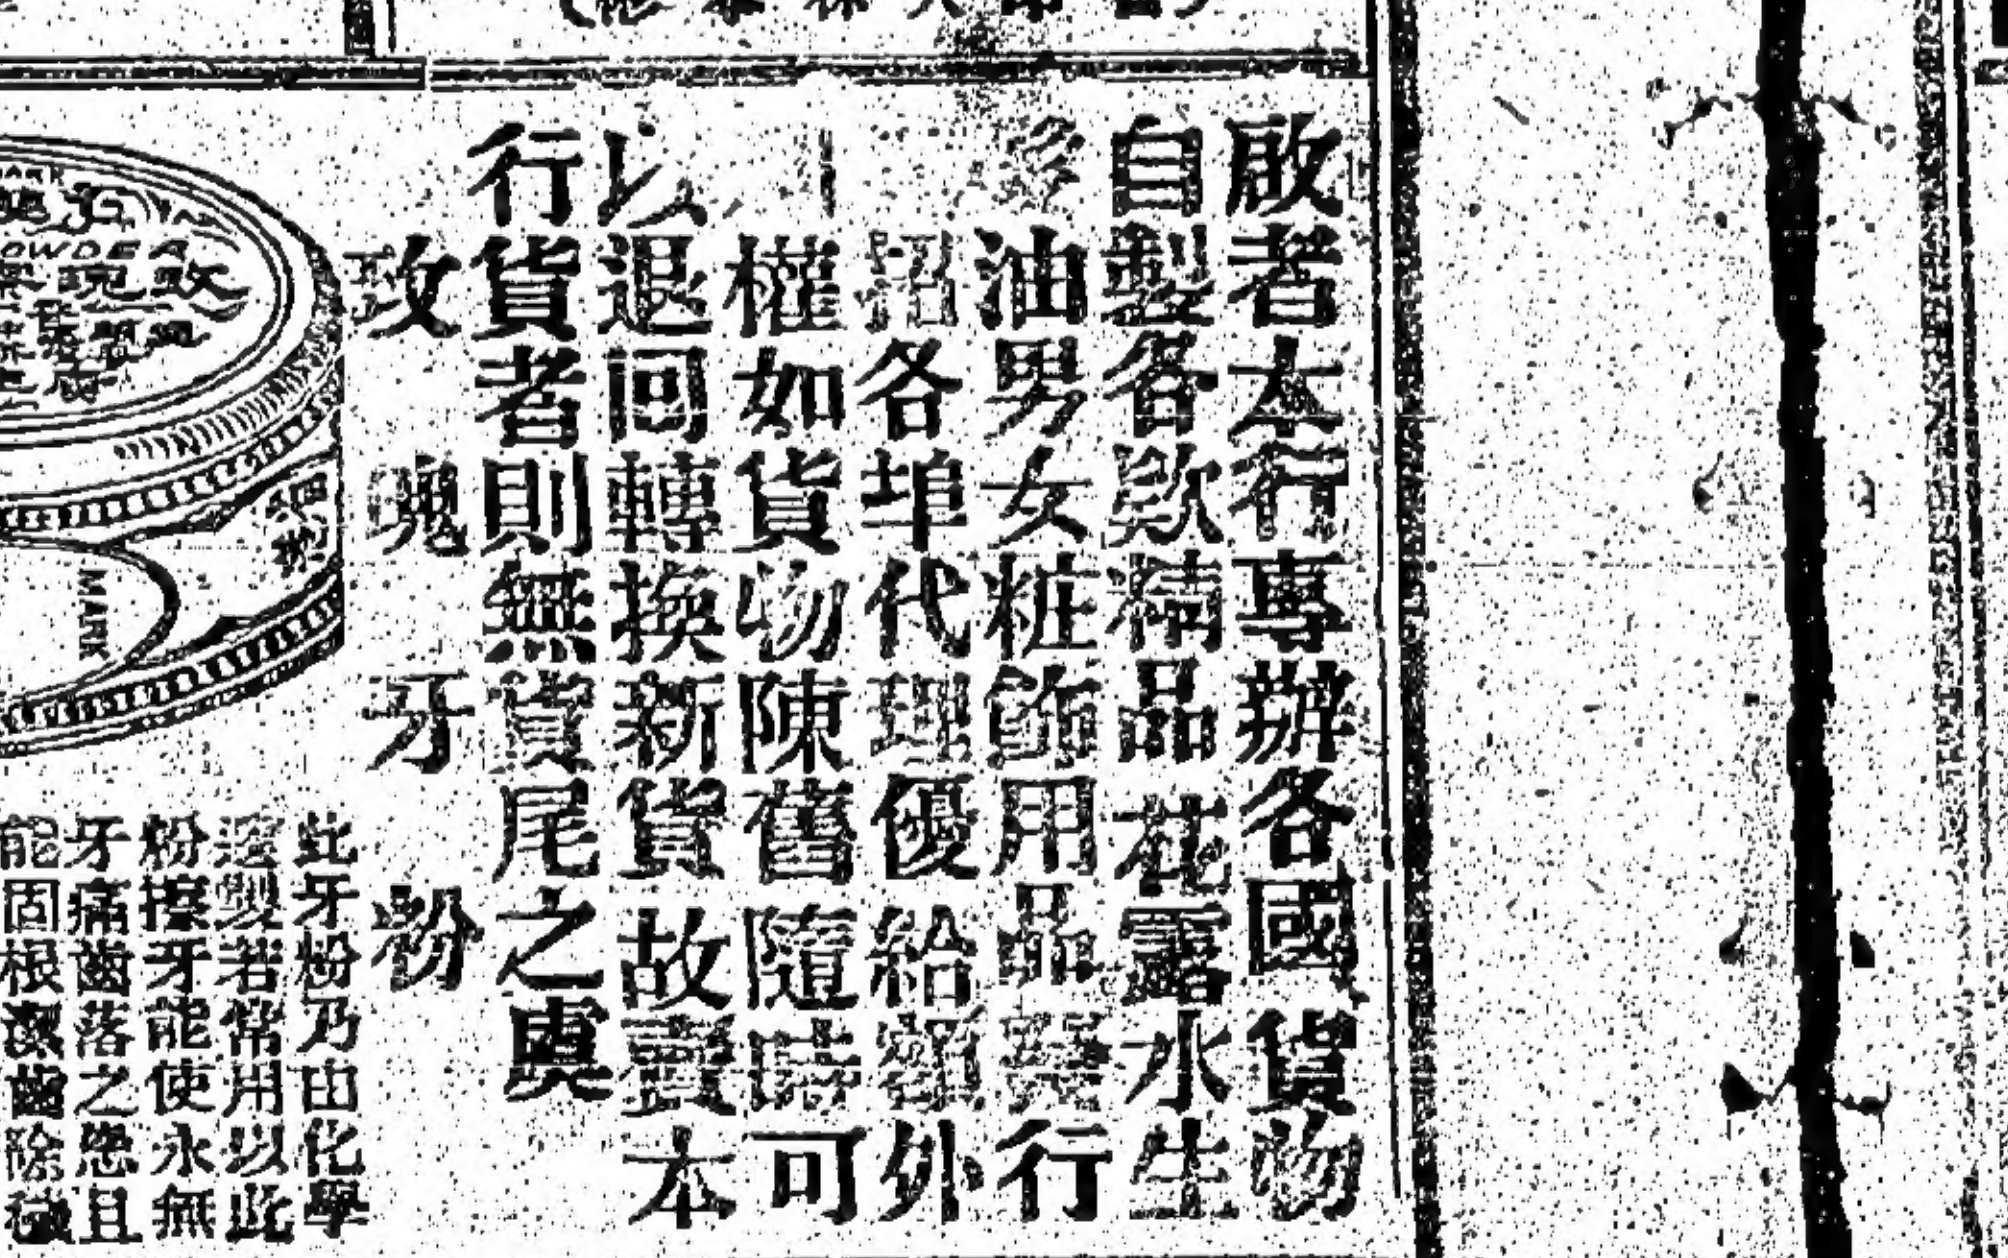 啟者本行專辦各國貨物
自製各欵精品花露水生
髮油男女粧飾用品 行
招各埠代理優給 外
權如貨物陳舊隨時可
以退回轉換新貨故賣本
行貨者則無貨尾之虞
玫瑰牙粉
此牙粉乃由化學
製若常用以此
粉擦牙能使永無
牙痛齒落之患且
能固根潔齒除穢
MARK
玫瑰
MARK